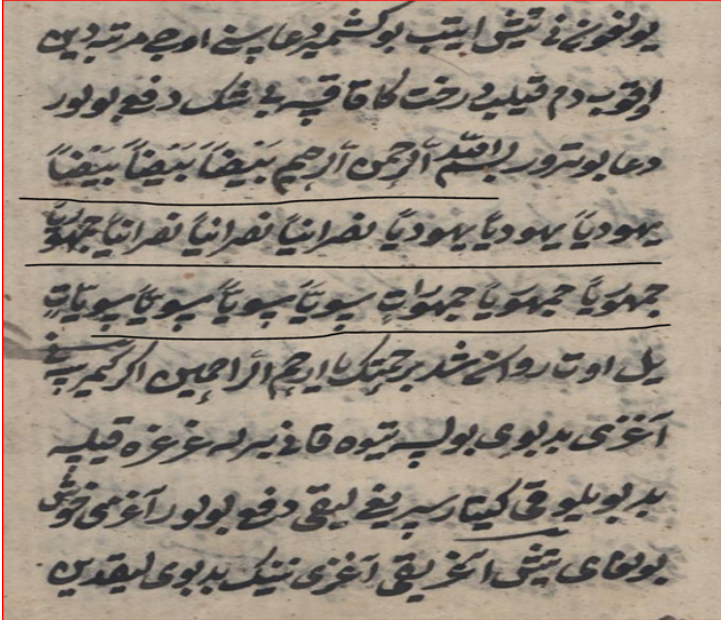 بولغونی نی تیش ایتب بو کشمیر دعا سنی اوچ مرتبه دین
اوقوب دم قیلب درخت کا قاقسه بی شک دفع بولور
دعا بو ترور بسم الله الرحمن الرحیم بَیَضاً بَیَضاً بَیَضاً بَیَضاً
یهودیاً یهودیاً یهودیاً نصرانیاً نصرانیاً نصرانیاً جمهویاً
جمهویاً جمهویاً جمهوَاتٍ سبویاً سبویاً سبویاً سبویاتٍ
یل اوت روانی شد برحمتک یا ارحم الراحمین اکر کمرسه نی
آغزی بدبوی بولسه تیوه قانی بیرله غرغره قیلسه
بدبویلوقی کیتار سریغ لیقی دفع بولور آغزی خوشبوی
بولغای تیش آغریقی آغزی نینک بدبوی لیقدین